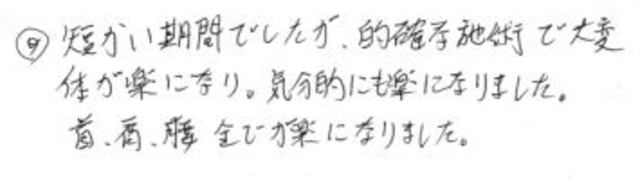 ⑨ 短かい期間でしたが、的確な施術で大変
体が楽になり。気分的にも楽になりました。
首、肩、腰 全てが楽になりました。